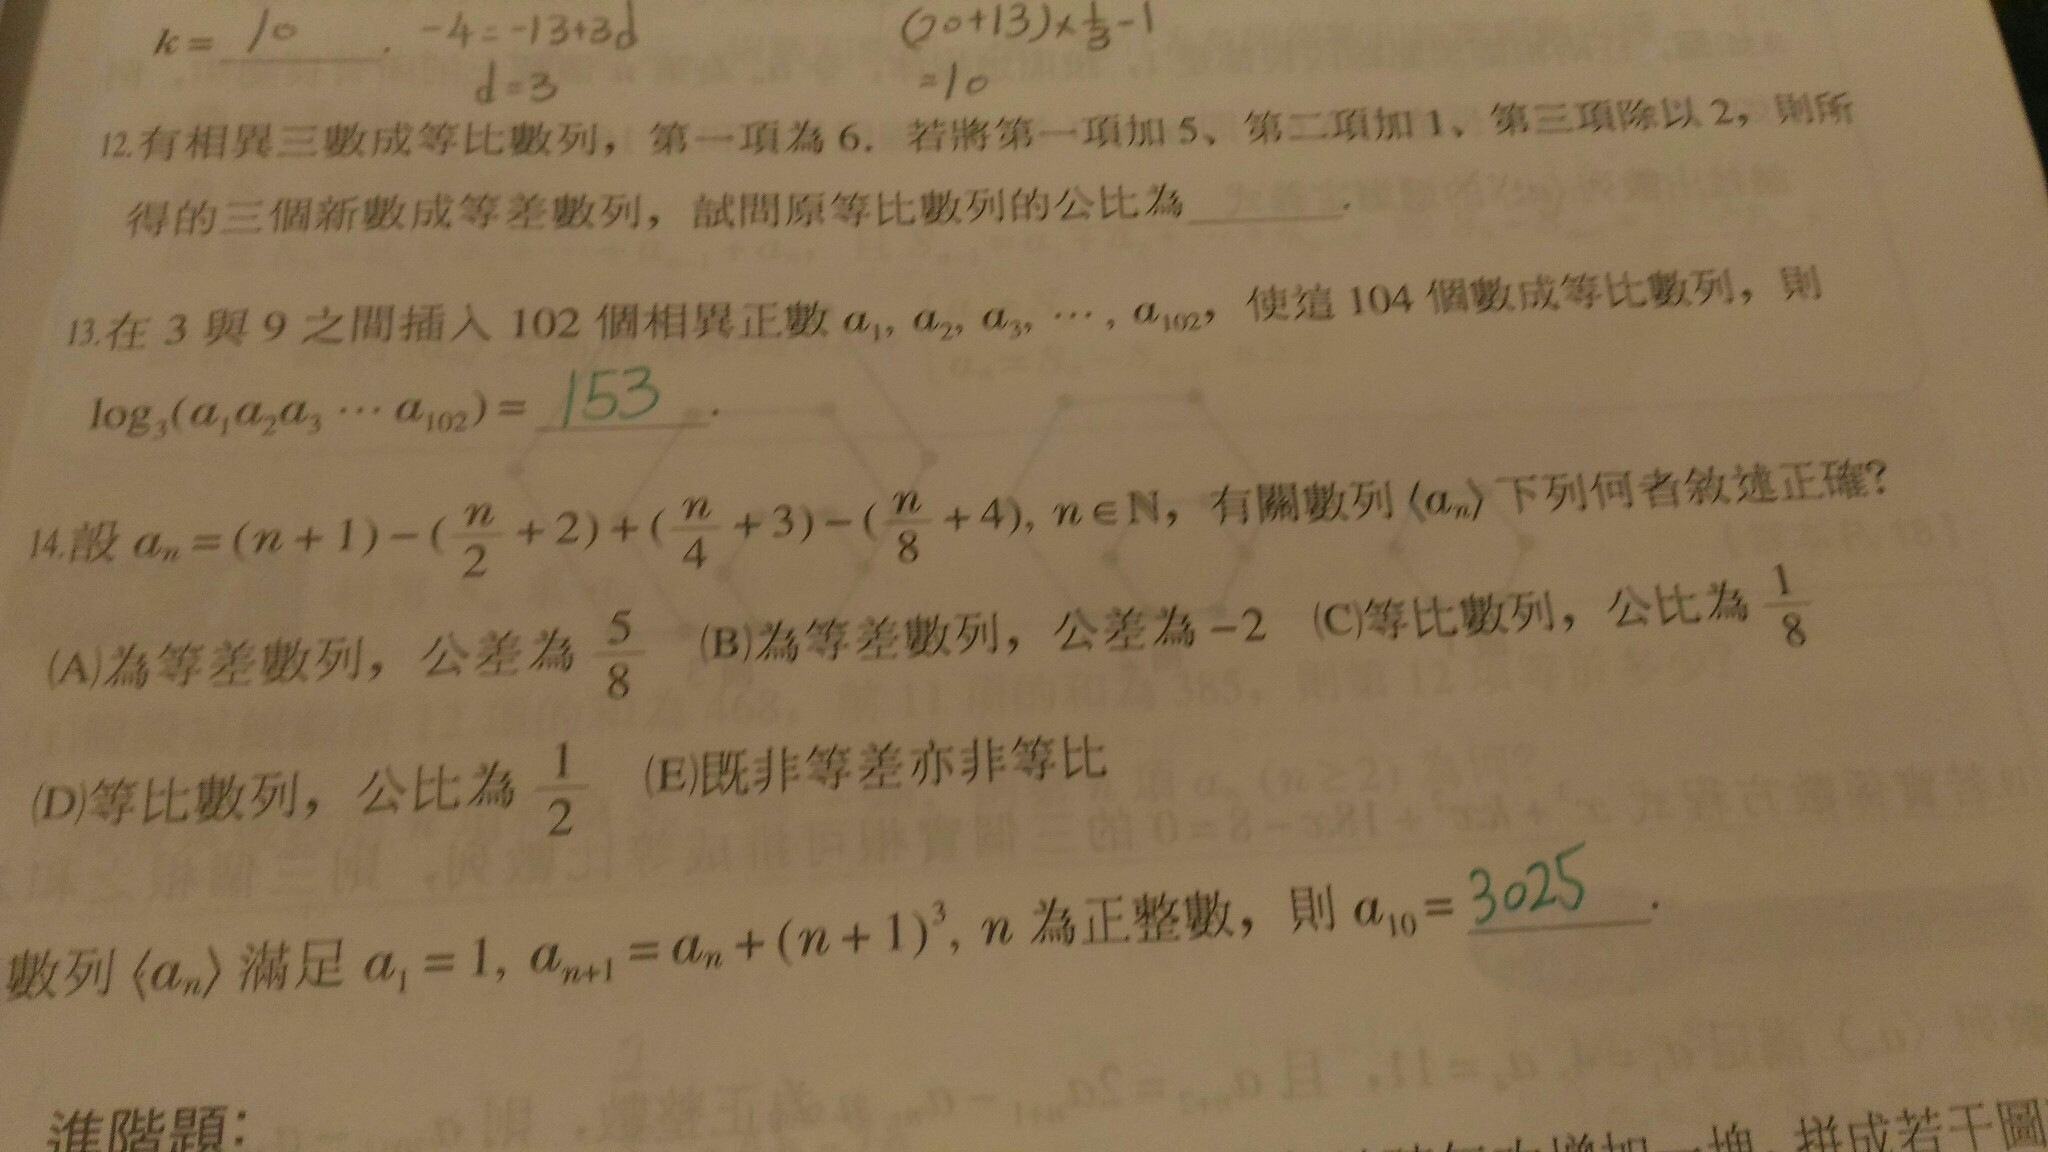 k = 10 . -4 = -13+3d (20+13)×1/3-1
d=3 =10
12.有相異三數成等比數列，第一項為 6．若將第一項加 5、第二項加 1、第三項除以 2，則所
得的三個新數成等差數列，試問原等比數列的公比為______．
13.在 3 與 9 之間插入 102 個相異正數 a₁, a₂, a₃, ⋯, a₁₀₂，使這 104 個數成等比數列，則
log₃(a₁a₂a₃ ⋯ a₁₀₂) = 153 ．
14.設 aₙ = (n + 1) − (n/2 + 2) + (n/4 + 3) − (n/8 + 4), n∈ℕ，有關數列 ⟨aₙ⟩ 下列何者敘述正確？
(A)為等差數列，公差為 5/8 (B)為等差數列，公差為 −2 (C)等比數列，公比為 1/8
(D)等比數列，公比為 1/2 (E)既非等差亦非等比
數列 ⟨aₙ⟩ 滿足 a₁ = 1, aₙ₊₁ = aₙ + (n + 1)³, n 為正整數，則 a₁₀ = 3025 ．
進階題：
增加一塊，拼成若干圖